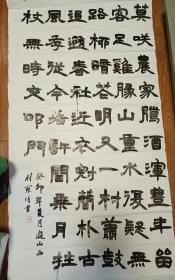 莫咲農家臘酒渾豊年留
客足雞豚山重水復疑無
路柳暗花明又一村簫鼓
追隨春社近衣冠簡朴古
風存從今若許閒乘月拄
杖無時夜叩門
癸卯年夏月遊山西
村
書